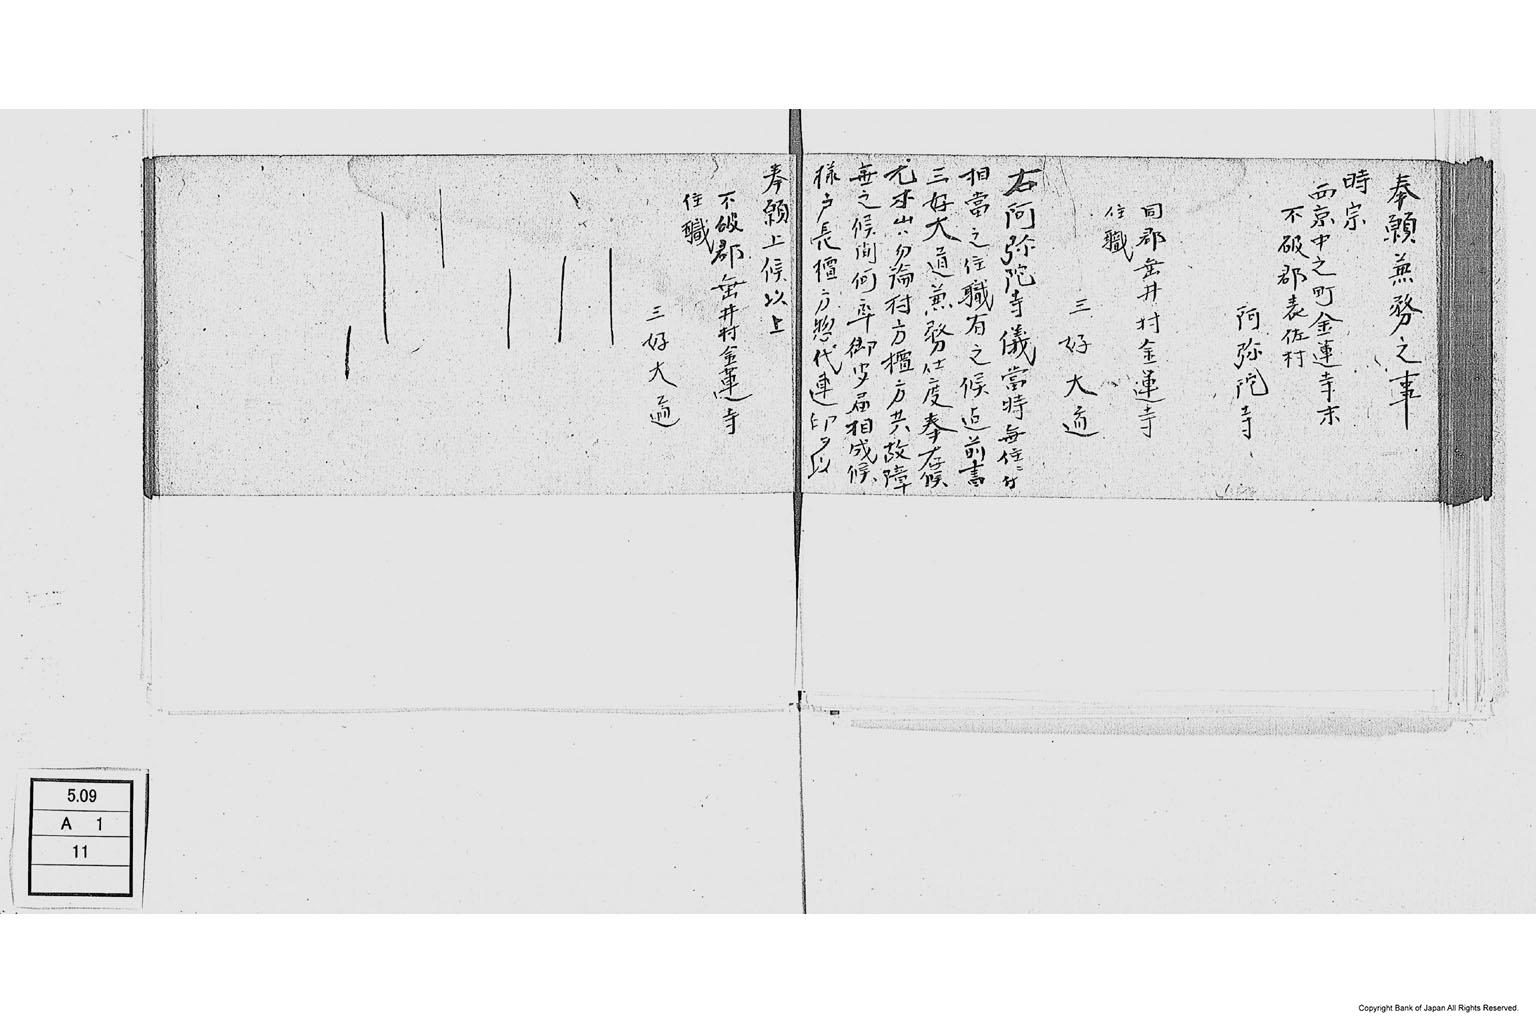 奉願兼務之事
時宗
西京中之町金蓮寺末
不破郡表佐村
阿弥陀寺
同郡垂井村金蓮寺
住職
三好大道
右阿弥陀寺儀當時無住ニ付
相當之住職有之候迠前書
三好大道兼務仕度奉存候
尤本山ハ勿論村方檀方共故障
無之候間何卒御聞届相成候
様戸長檀方惣代連印を以
奉願上候以上
不破郡垂井村金蓮寺
住職
三好大道
5.09
A 1
11
Copyright Bank of Japan All Rights Reserved.